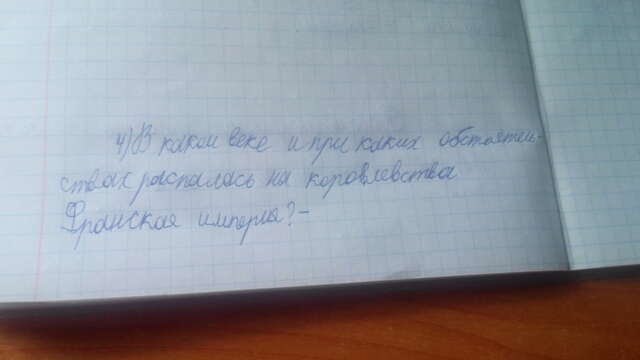 4) В каком веке и при каких обстоятель-
ствах распалась на королевства
Франская империя? -